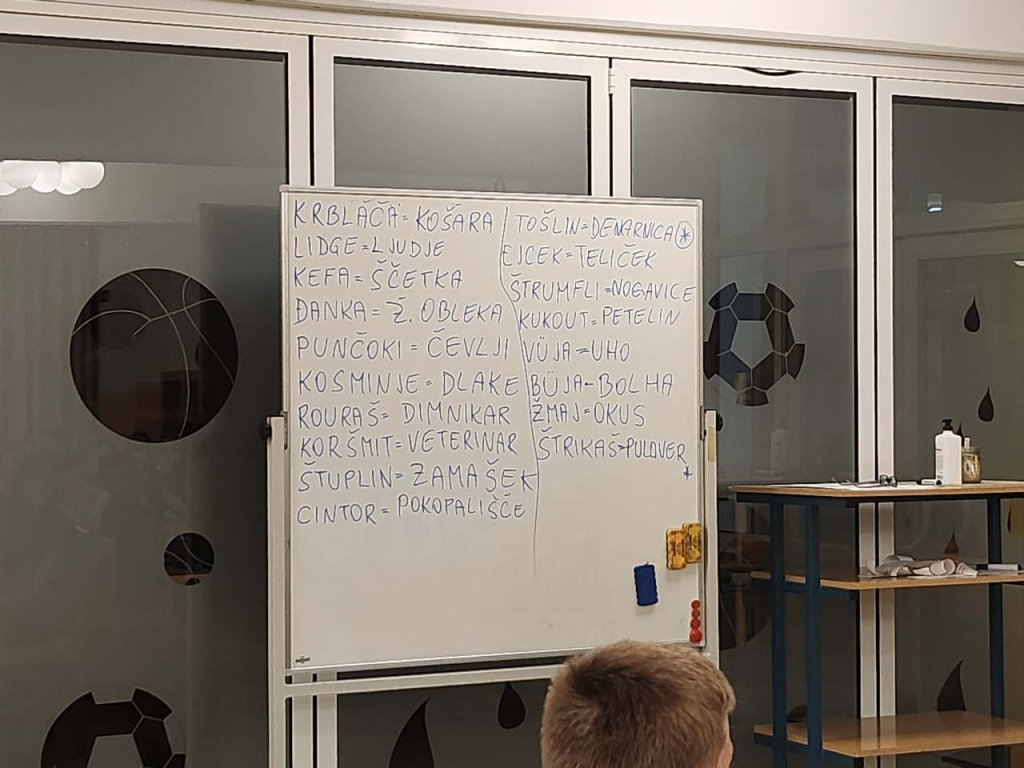 KRBLAČA=KOŠARA
LIDGE=LJUDJE
KEFA=ŠČETKA
ĐANKA=Ž. OBLEKA
PUNČOKI=ČEVLJI
KOSMINJE=DLAKE
ROURAŠ=DIMNIKAR
KORŠMIT=VETERINAR
ŠTUPLIN=ZAMAŠEK
CINTOR=POKOPALIŠČE
TOŠLIN=DENARNICA *
EJCEK=TELIČEK
ŠTRUMFLI=NOGAVICE
KUKOUT=PETELIN
VÜJA=UHO
BÜJA=BOLHA
ŽMAJ=OKUS
ŠTRIKAŠ=PULOVER
*